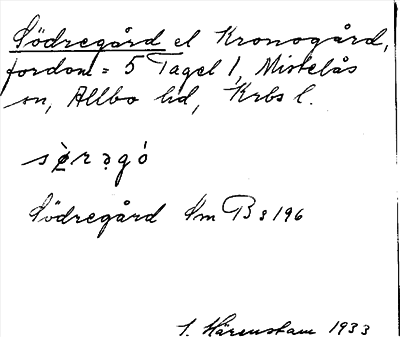 Södregård el Kronogård,
fordom = 5 Tagel 1, Mistelås
sn, Allbo hd, Krbs l.
Södregård Sm B 3 196
1933